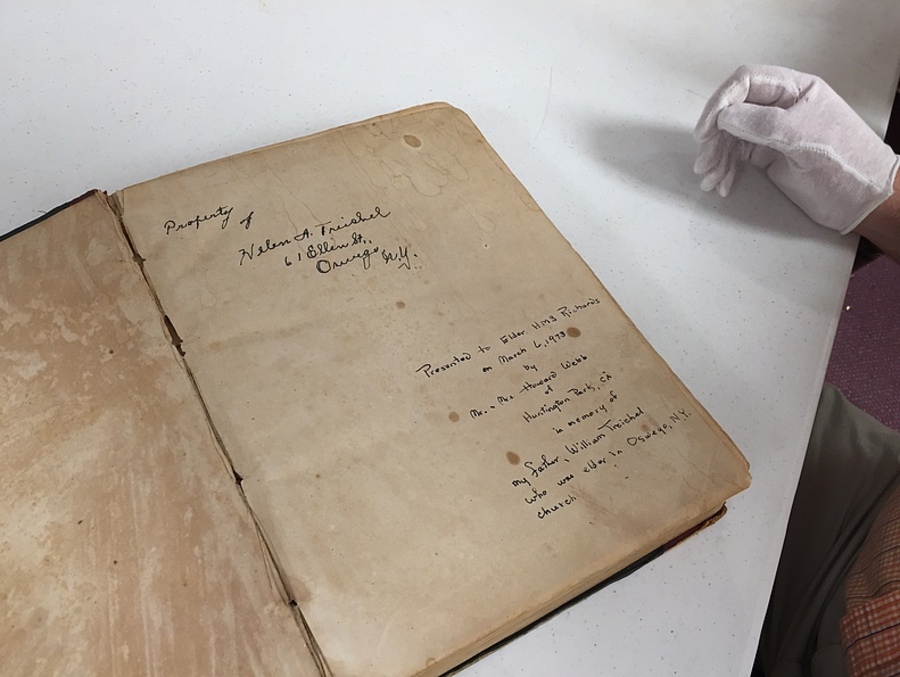 Property of
Helen A. Treichel
61 Ellen St.,
Oswego N.Y.
Presented to Elder HMS Richards
on March 6, 1973
by
Mr. & Mrs. Howard Webb
of
Huntington Park, CA
in memory of
my father, William Treichel
who was elder in Oswego, N.Y.
church